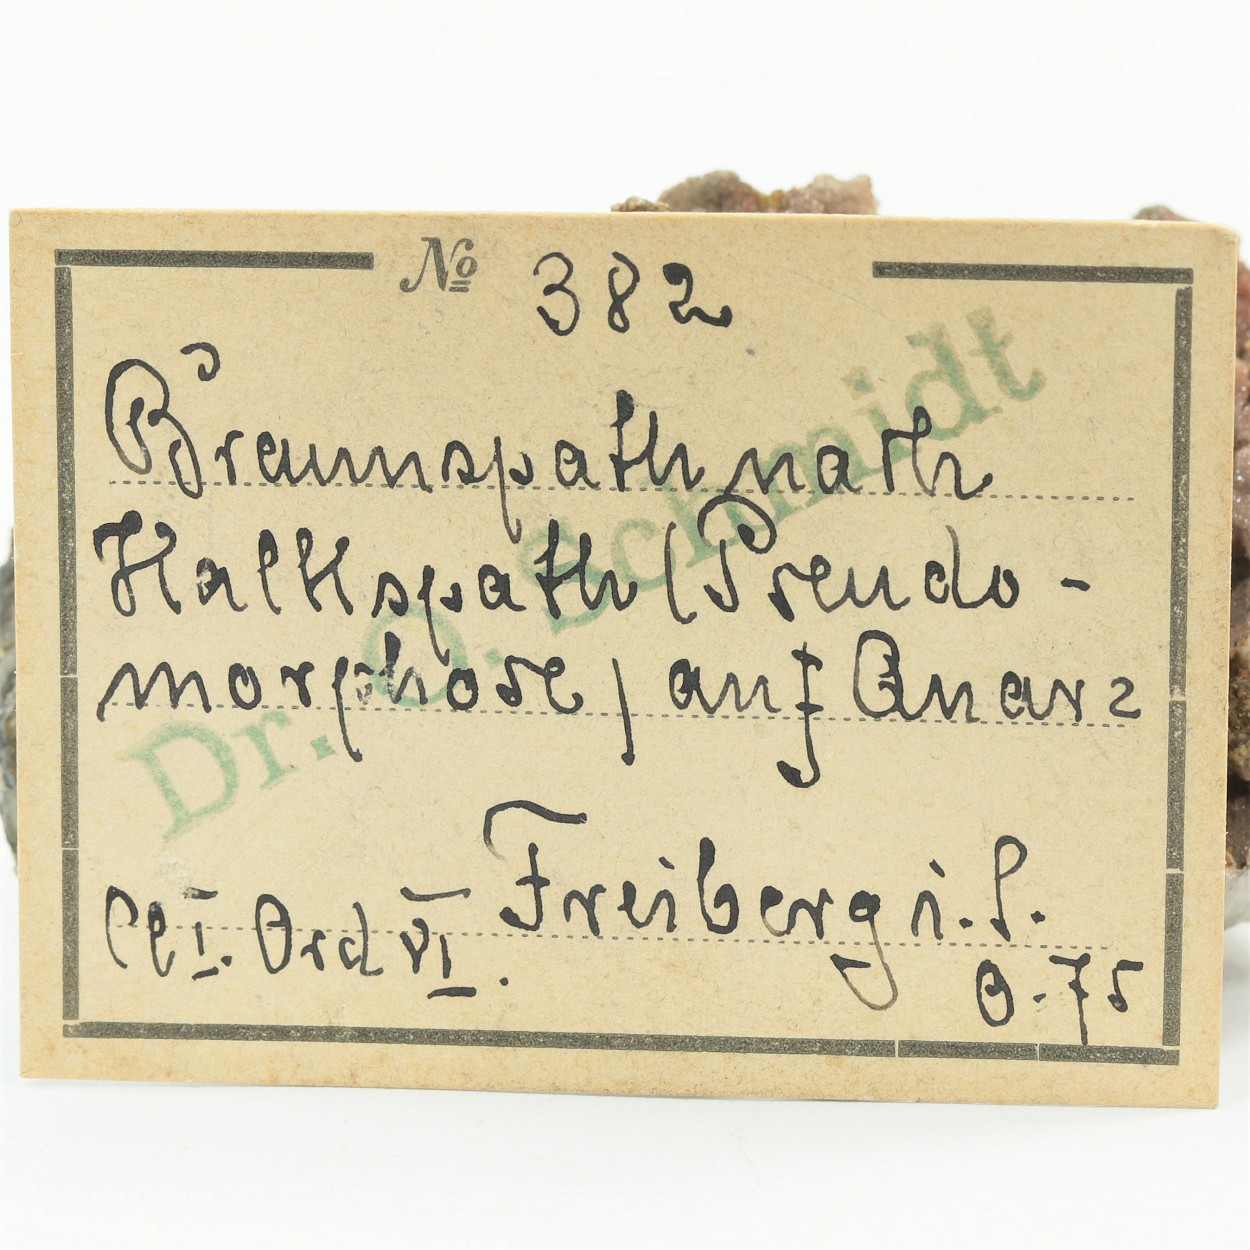 № 382
Braunspath nach
Kalkspath (Pseudo-
morphose) auf Quarz
Freiberg i. S.
Cl I. Ord VI.
0.75
Dr. O. Schmidt